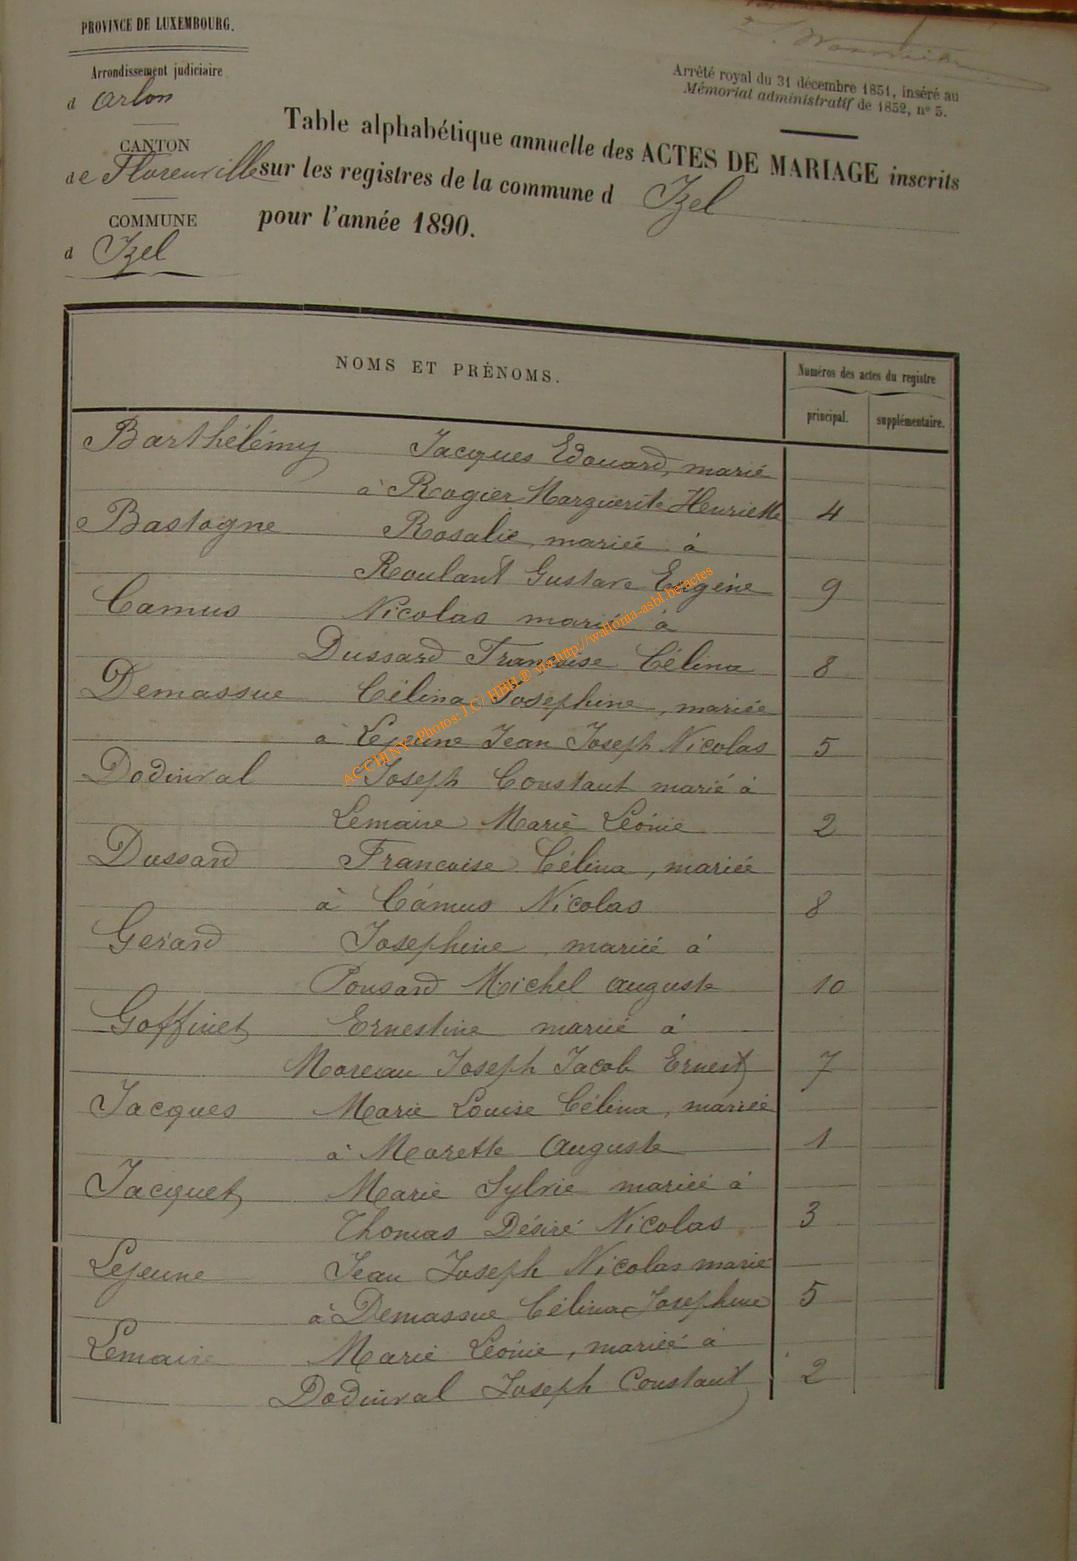 PROVINCE DE LUXEMBOURG.
Arrondissement judiciaire
d Arlon
CANTON
de Florenville
COMMUNE
d Izel
Arrêté royal du 31 décembre 1851, inséré au
Mémorial administratif de 1852, n° 5.
Table alphabétique annuelle des ACTES DE MARIAGE inscrits
sur les registres de la commune d Izel
pour l'année 1890.
NOMS ET PRÉNOMS.
Numéros des actes du registre
principal. supplémentaire.
Barthélémy Jacques Edouard, marié
à Rogier Marguerite Henriette 4
Bastogne Rosalie, mariée à
Roulant Gustave Eugène 9
Camus Nicolas marié à
Dussard Francoise Célina 8
Demassue Célina Josephine, mariée
à Lejeune Jean Joseph Nicolas 5
Dodinval Joseph Constant marié à
Lemaire Marie Léonie 2
Dussard Francoise Célina, mariée
à Camus Nicolas 8
Gérard Josephine, mariée à
Ponsard Michel Auguste 10
Goffinet Ernestine mariée à
Moreau Joseph Jacob Ernest 7
Jacques Marie Louise Célina, mariée
à Marette Auguste 1
Jacquet Marie Sylvie mariée à
Thomas Désiré Nicolas 3
Lejeune Jean Joseph Nicolas marié
à Demassue Célina Josephine 5
Lemaire Marie Léonie, mariée à
Dodinval Joseph Constant 2
ACCHINY Photos: J.C/ HBH® via http://wallonia-asbl.be/actes